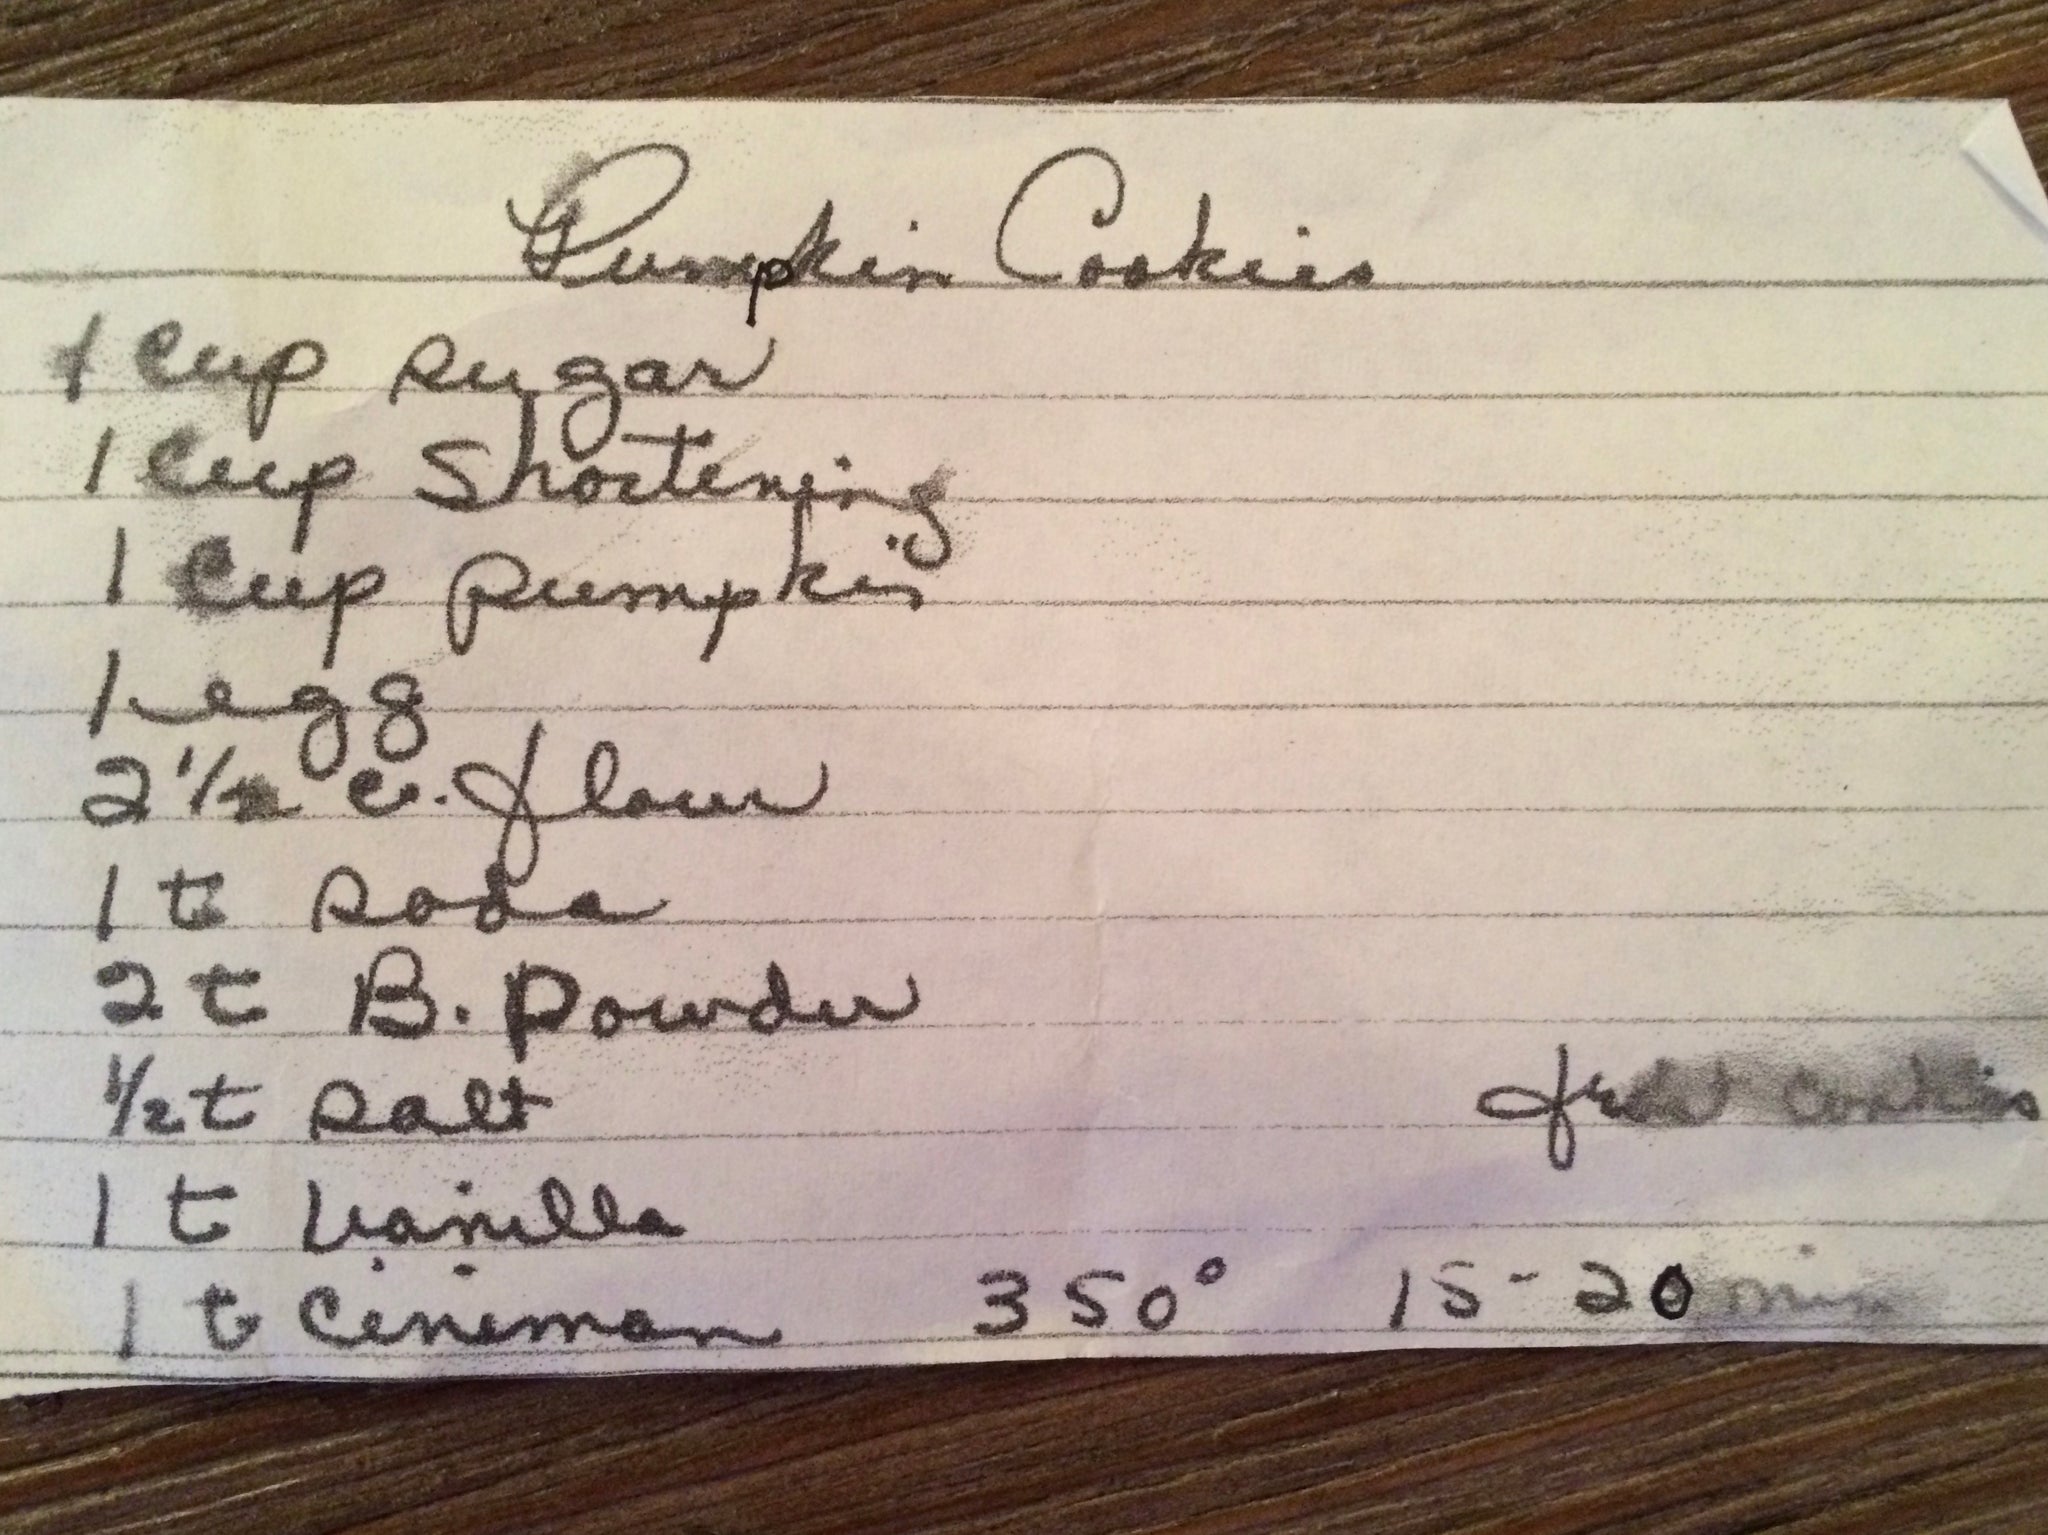 Pumpkin Cookies
1 cup sugar
1 cup shortening
1 cup pumpkin
1 egg
2 1/2 c. flour
1 t soda
2 t B. Powder
1/2 t salt
cookies
1 t vanilla
1 t cineman 350° 15-20 min